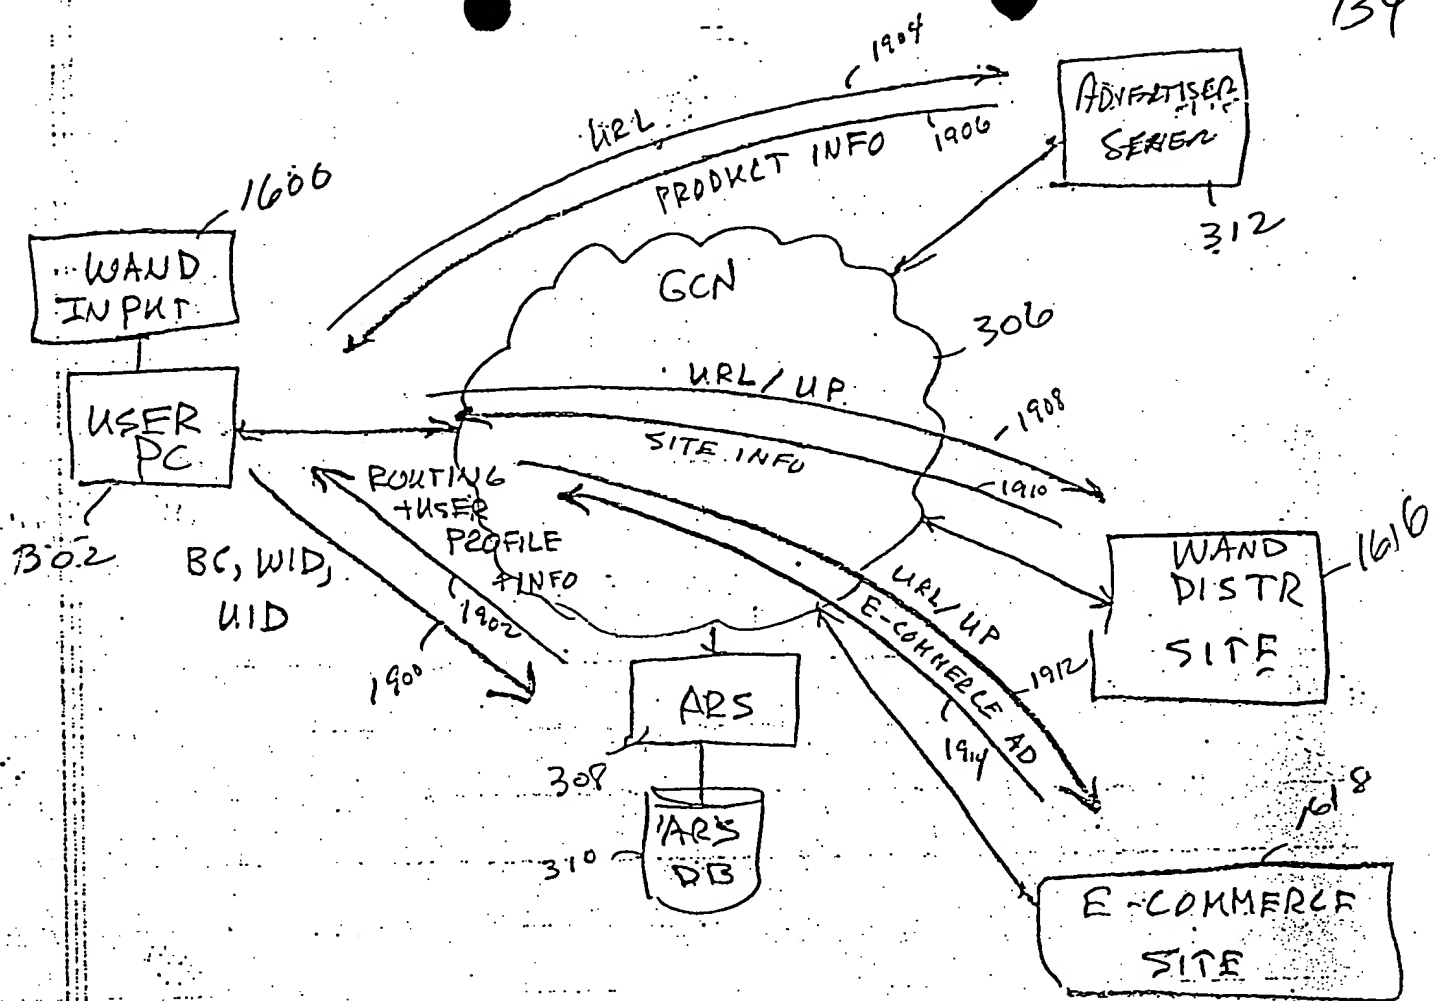 134
1904
URL
1906
PRODUCT INFO
ADVERTISER
SERVER
312
1600
WAND
INPUT
GCN
306
USER
PC
1302
URL/UP
1908
SITE INFO
1910
ROUTING
+USER
PROFILE
+INFO
1902
BC, WID,
UID
1900
WAND
DISTR
SITE
1616
URL/UP
1912
E-COMMERCE AD
1914
ARS
308
ARS
DB
310
1618
E-COMMERCE
SITE